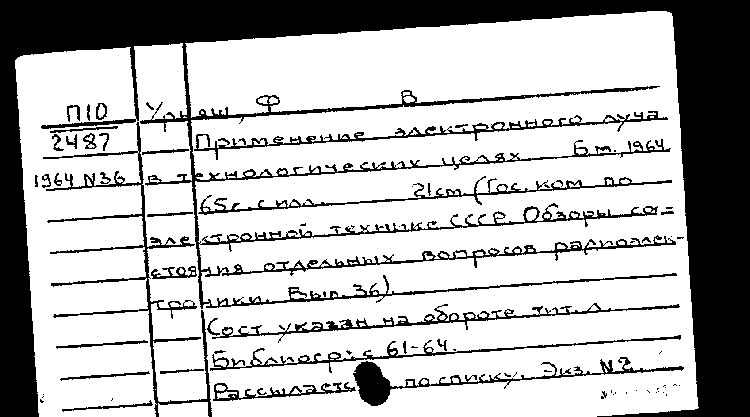 П10 Урнеш, Ф В
2487 Применение электронного луча
1964 N36 в технологических целях Б.м., 1964
65с. с илл. 21см (Гос. ком по
электронной технике СССР. Обзоры со=
стояния отдельных вопросов радиоэлек-
троники. Вып. 36)
Сост указан на обороте тит. л.
Библиогр: с 61-64.
Рассылается по списку. Экз. N2.